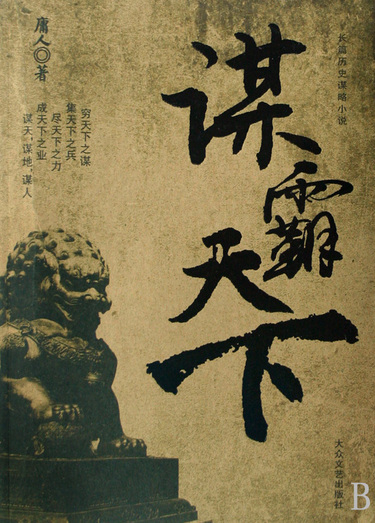 长篇历史谋略小说
谋霸天下
庸人◎著
穷天下之谋
集天下之兵
尽天下之力
成天下之业
谋天，谋地，谋人
大众文艺出版社
B